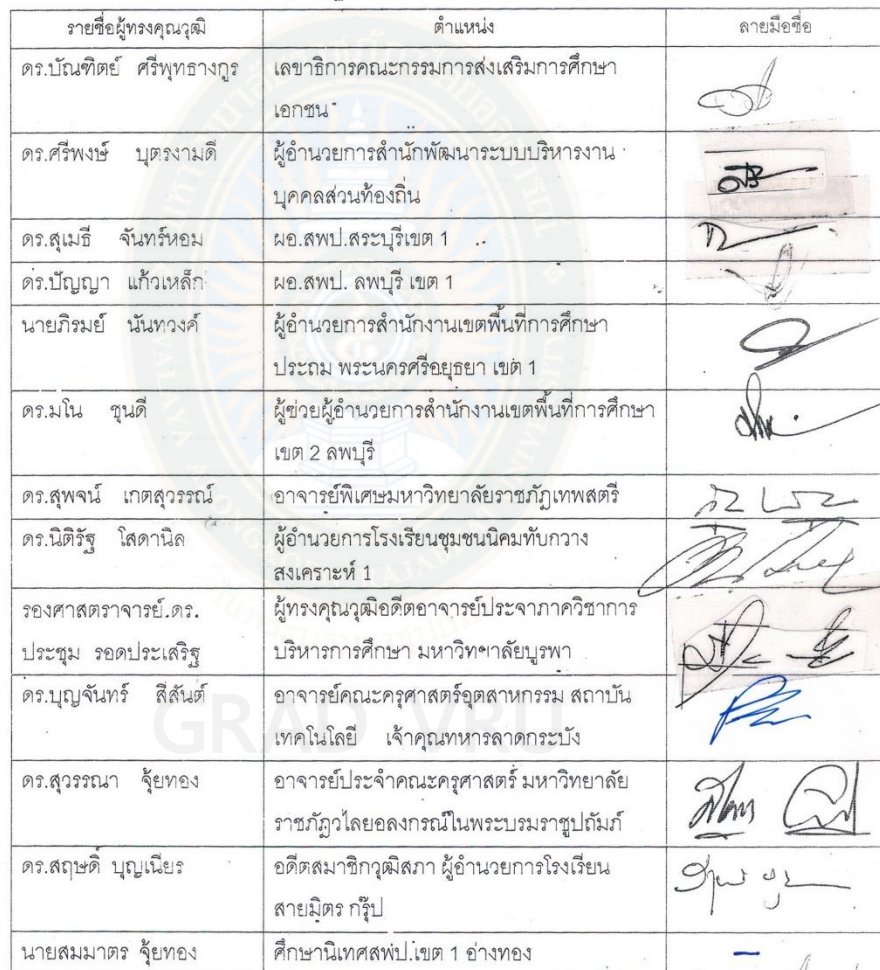 รายชื่อผู้ทรงคุณวุฒิ ตำแหน่ง ลายมือชื่อ
ดร.บัณฑิตย์ ศรีพุทธางกูร เลขาธิการคณะกรรมการส่งเสริมการศึกษา
เอกชน
ดร.ศรีพงษ์ บุตรงามดี ผู้อำนวยการสำนักพัฒนาระบบบริหารงาน
บุคคลส่วนท้องถิ่น
ดร.สุเมธี จันทร์หอม ผอ.สพป.สระบุรีเขต 1
ดร.ปัญญา แก้วเหล็ก ผอ.สพป. ลพบุรี เขต 1
นายภิรมย์ นันทวงค์ ผู้อำนวยการสำนักงานเขตพื้นที่การศึกษา
ประถม พระนครศรีอยุธยา เขต 1
ดร.มโน ชุนดี ผู้ช่วยผู้อำนวยการสำนักงานเขตพื้นที่การศึกษา
เขต 2 ลพบุรี
ดร.สุพจน์ เกตสุวรรณ์ อาจารย์พิเศษมหาวิทยาลัยราชภัฏเทพสตรี
ดร.นิติรัฐ โสดานิล ผู้อำนวยการโรงเรียนชุมชนนิคมทับกวาง
สงเคราะห์ 1
รองศาสตราจารย์.ดร. ผู้ทรงคุณวุฒิอดีตอาจารย์ประจำภาควิชาการ
ประชุม รอดประเสริฐ บริหารการศึกษา มหาวิทยาลัยบูรพา
ดร.บุญจันทร์ สีสันต์ อาจารย์คณะครุศาสตร์อุตสาหกรรม สถาบัน
เทคโนโลยี เจ้าคุณทหารลาดกระบัง
GRAD VRU
ดร.สุวรรณา จุ้ยทอง อาจารย์ประจำคณะครุศาสตร์ มหาวิทยาลัย
ราชภัฏวไลยอลงกรณ์ในพระบรมราชูปถัมภ์
ดร.สฤษดิ์ บุญเนียร อดีตสมาชิกวุฒิสภา ผู้อำนวยการโรงเรียน
สายมิตร กรุ๊ป
นายสมมาตร จุ้ยทอง ศึกษานิเทศสพป.เขต 1 อ่างทอง